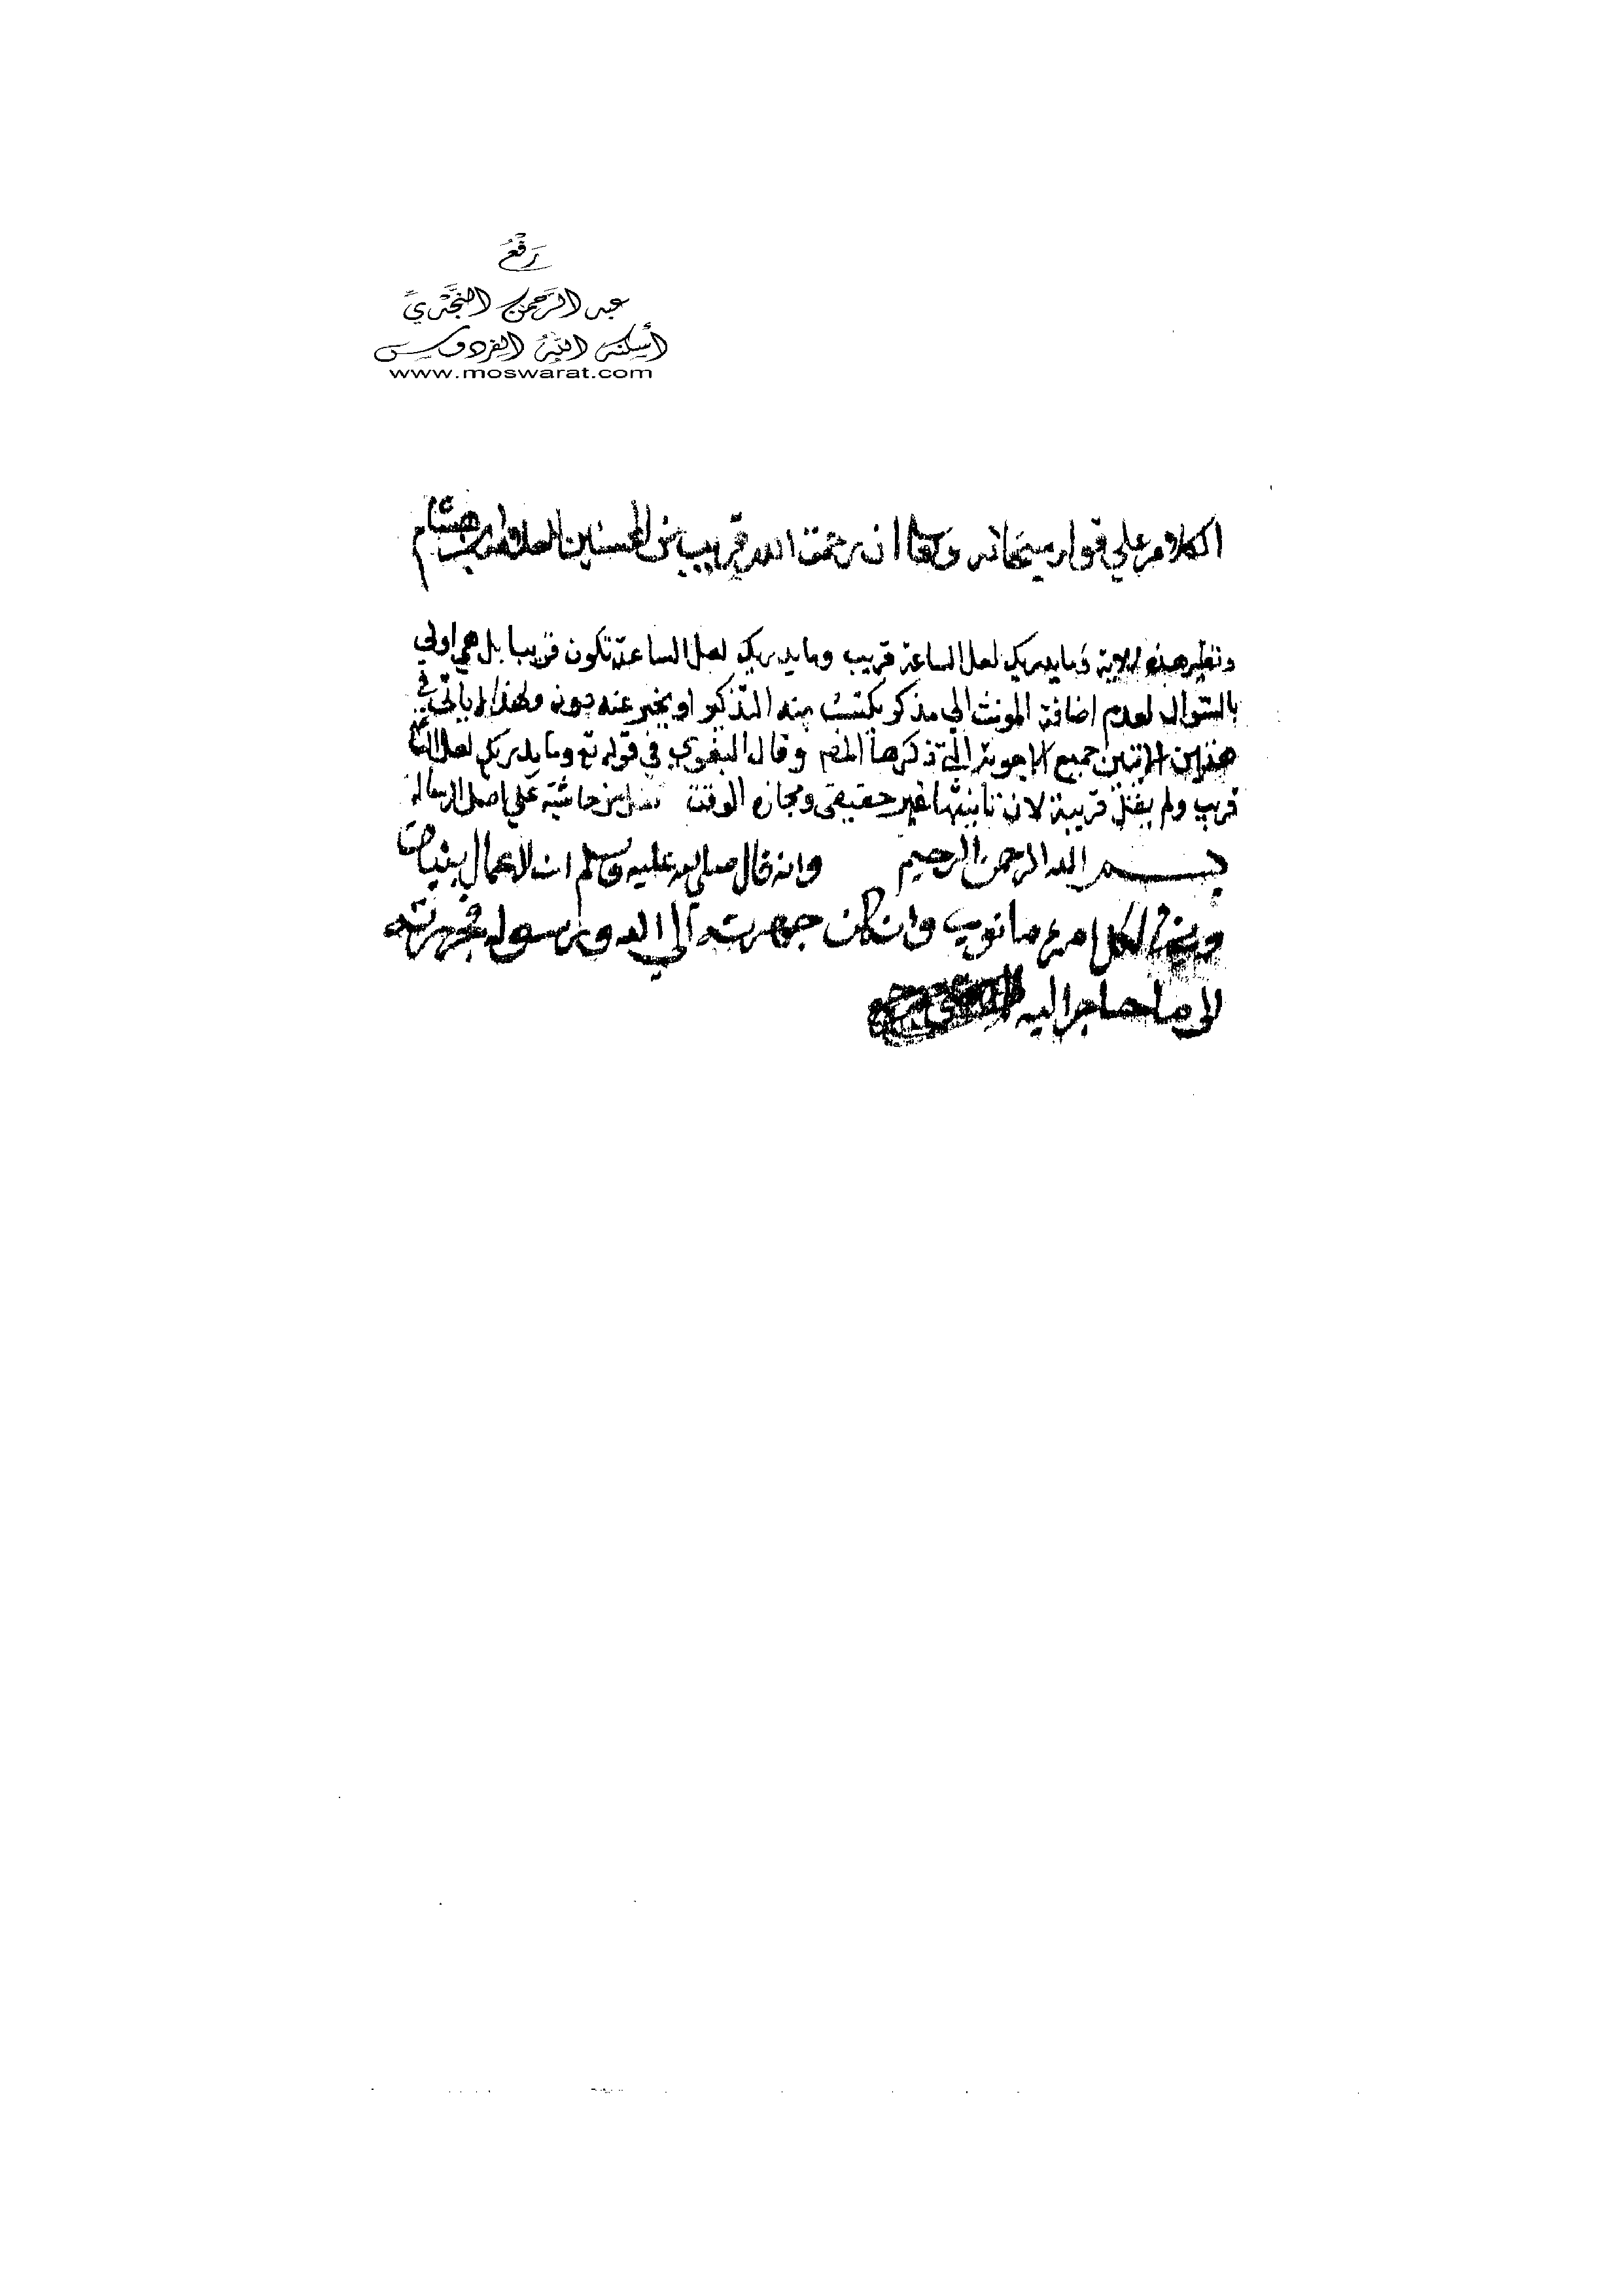 رَفْعُ
عبد الرَّحمن النَّجْدِيِّ
أَسْكَنَهُ اللهُ الفِرْدَوْسَ
www.moswarat.com
الكلام علي قوله سبحانه وتعا ان رحمت الله قريب من المحسنين للعلامة ابن هشام
ونظير هذه الاية وما يدريك لعل الساعة قريب وما يدريك لعل الساعة تكون قريبا بل هي اولي
بالسوال لعدم اضافة المونث الي مذكر يكتسب منه التذكير او يخبر عنه دونه ولهذا لا ياتي في
هذين الاتيين جميع الاجوبة التي ذكرها المص وقال البغوي في قوله تع وما يدريك لعل الساعة
قريب ولم يقل قريبة لان تانيثها غير حقيقي ومجازه الوقت نقل من حاشية علي اصل الرسالة
بسم الله الرحمن الرحيم وانه قال صلي الله عليه وسلم ان لاعمال بنيات
لكل امرء ما نوي وان كان جهرته الي الله ورسوله فجهرته
لي ما هاجر اليه